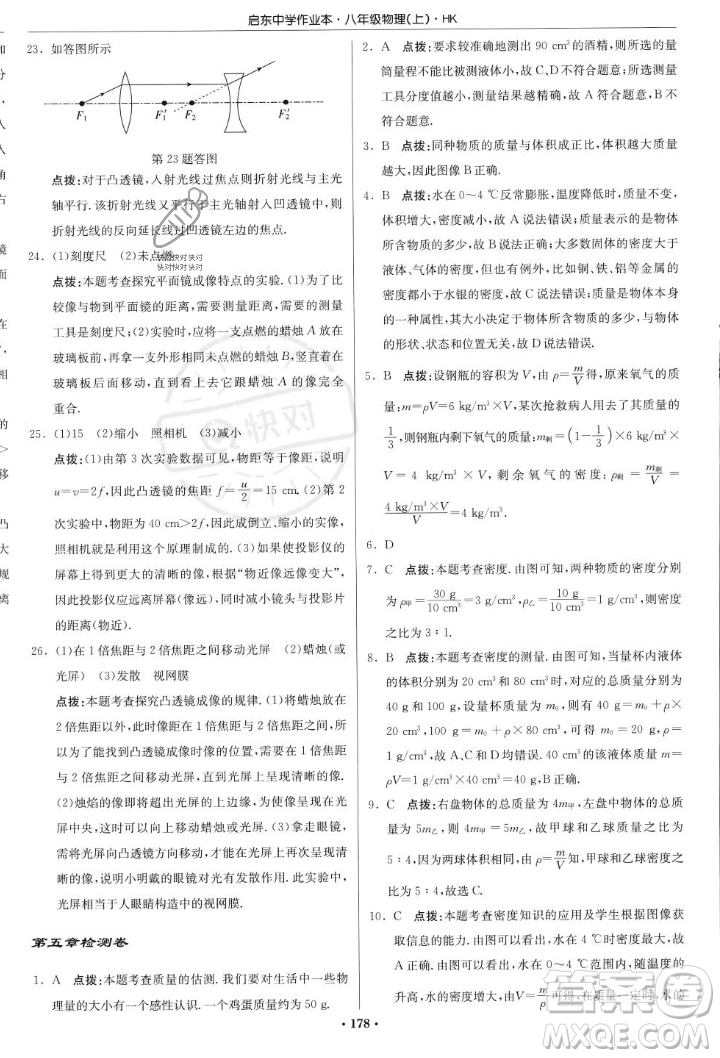 启东中学作业本·八年级物理(上)·HK
23. 如答图所示
F₁ F₁′ F₂ F₂′
第 23 题答图
点拨:对于凸透镜,入射光线过焦点则折射光线与主光
轴平行.该折射光线又平行于主光轴射入凹透镜,故折
射光线的反向延长线过凹透镜的焦点.
24. (1)刻度尺 (2)未点燃
点拨:本题考查探究平面镜成像特点的实验.(1)为了比
较像与物到平面镜的距离,需要测量距离,需要的测量
工具是刻度尺;(2)实验时,应将一支点燃的蜡烛 A 放在
玻璃板前,再拿一支大小相同未点燃的蜡烛 B 竖立着在
玻璃板后面移动,直至看上去它跟蜡烛 A 的像完全
重合.
25. (1)15 (2)缩小 照相机 (3)减小
点拨:(1)由第 3 次实验数据可见,物距等于像距,则
u=v=2f,因此凸透镜的焦距 f=u/2=15 cm.(2)第 2
次实验中,物距为 40 cm>2f,因此成倒立、缩小的实像,
照相机就是利用这个原理制成的.(3)若使投影仪的
屏幕上得到更大的清晰的像,根据“物近像远像变大”,
因此投影仪应远离屏幕(像远),同时减小镜头与投影片
的距离(物近).
26. (1)在 1 倍焦距与 2 倍焦距之间移动光屏 (2)蜡烛(或
光屏) (3)发散 视网膜
点拨:本题考查探究凸透镜成像的规律.(1)将蜡烛放在 2
倍焦距以外,此时像距在 1 倍焦距与 2 倍焦距之间,所
以找蜡烛通过凸透镜成像时像的位置,需要在 1 倍焦距
与 2 倍焦距之间移动光屏,直到光屏上成清晰的像.
(2)烛焰的像成在光屏的上边缘,为了使像成在光
屏中央,可以向上移动蜡烛或光屏.(3)拿走眼镜,
向凸透镜方向移动光屏,光屏上又可得到清晰的像.由
此可以说明小明戴的眼镜对光有发散作用.此实验中,
光屏相当于人眼睛构造中的视网膜.
第五章检测卷
1. A 点拨:本题考查质量的估测.我们要对生活中一些物
理量的大小有一个感性认识.一个鸡蛋质量大约为 50 g.
2. A 点拨:要求较准确地测出 90 cm³ 的酒精,则量
筒量程不能比被测液体小,故 C、D 不符合题意;而测量
工具分度值越小,测量结果越精确,故 A 符合题意,B 不
符合题意.
3. B 点拨:同种物质的质量与体积成正比,体积越大质量
越大.因此图像 B 正确.
4. B 点拨:水在 0～4 ℃反常膨胀,温度降低,质量不变,
体积增大,密度减小,所以 A 说法错误;质量是物体
所含物质的多少,不随物体的形状变化而变化,
液态的金属,其密度比有些固体,如铜、铁、铝等金属的
密度都大,所以 C 说法错误;密度是物质的一种
特性,其大小决定于物体所含物质的种类,与物体的质
量、体积无关,所以 D 说法错误.
5. B 点拨:设钢瓶的容积为 V,由 ρ=m/V得,原来氧气的质
量:m=ρV=6 kg/m³×V,某次抢救病人用去了质量的
1/3,则钢瓶内剩下氧气的质量:m剩=(1-1/3)×6 kg/m³
×V = 4 kg/m³×V,剩余氧气的密度:ρ剩 = m剩/V =
4 kg/m³×V/V=4 kg/m³.
6. D
7. A 点拨:本题考查密度.由图可知,两种物质的密度分别
为 ρ甲=30 g/10 cm³=3 g/cm³,ρ乙=10 g/10 cm³=1 g/cm³,则密度
之比为 3∶1.
8. B 点拨:本题考查密度的测量.由图可知,当量杯内液体
的体积分别为 20 cm³ 和 80 cm³ 时,对应的总质量分别是
40 g 和 100 g,设量杯质量为 m₀,则可得 40 g=m₀+ρ×
20 cm³,100 g = m₀ + ρ × 80 cm³,可得 m₀ = 20 g,
ρ=1 g/cm³,故 A、C、D 均错误;60 cm³ 的该液体质量 m=
ρV=1 g/cm³×60 cm³=60 g,故 B 正确.
9. C 点拨:右盘物体的总质量为 4m甲,左盘中物体的总质
量为 5m乙,则 4m甲=5m乙,故甲球和乙球质量之比为
5∶4,因为两球体积相同,由 ρ=m/V知,甲球与乙球密度之
比为 5∶4.
10. C 点拨:本题考查密度知识的应用及学生根据图像获
取信息的能力.由图可以看出,水在 4 ℃时密度最大,
在 0～4 ℃范围内,水的密度随温度的
升高,密度增大,故由 V=m/ρ可得,在质量一定时,
·178·
快对
快对快对快对
答案圈
MXQE.COM